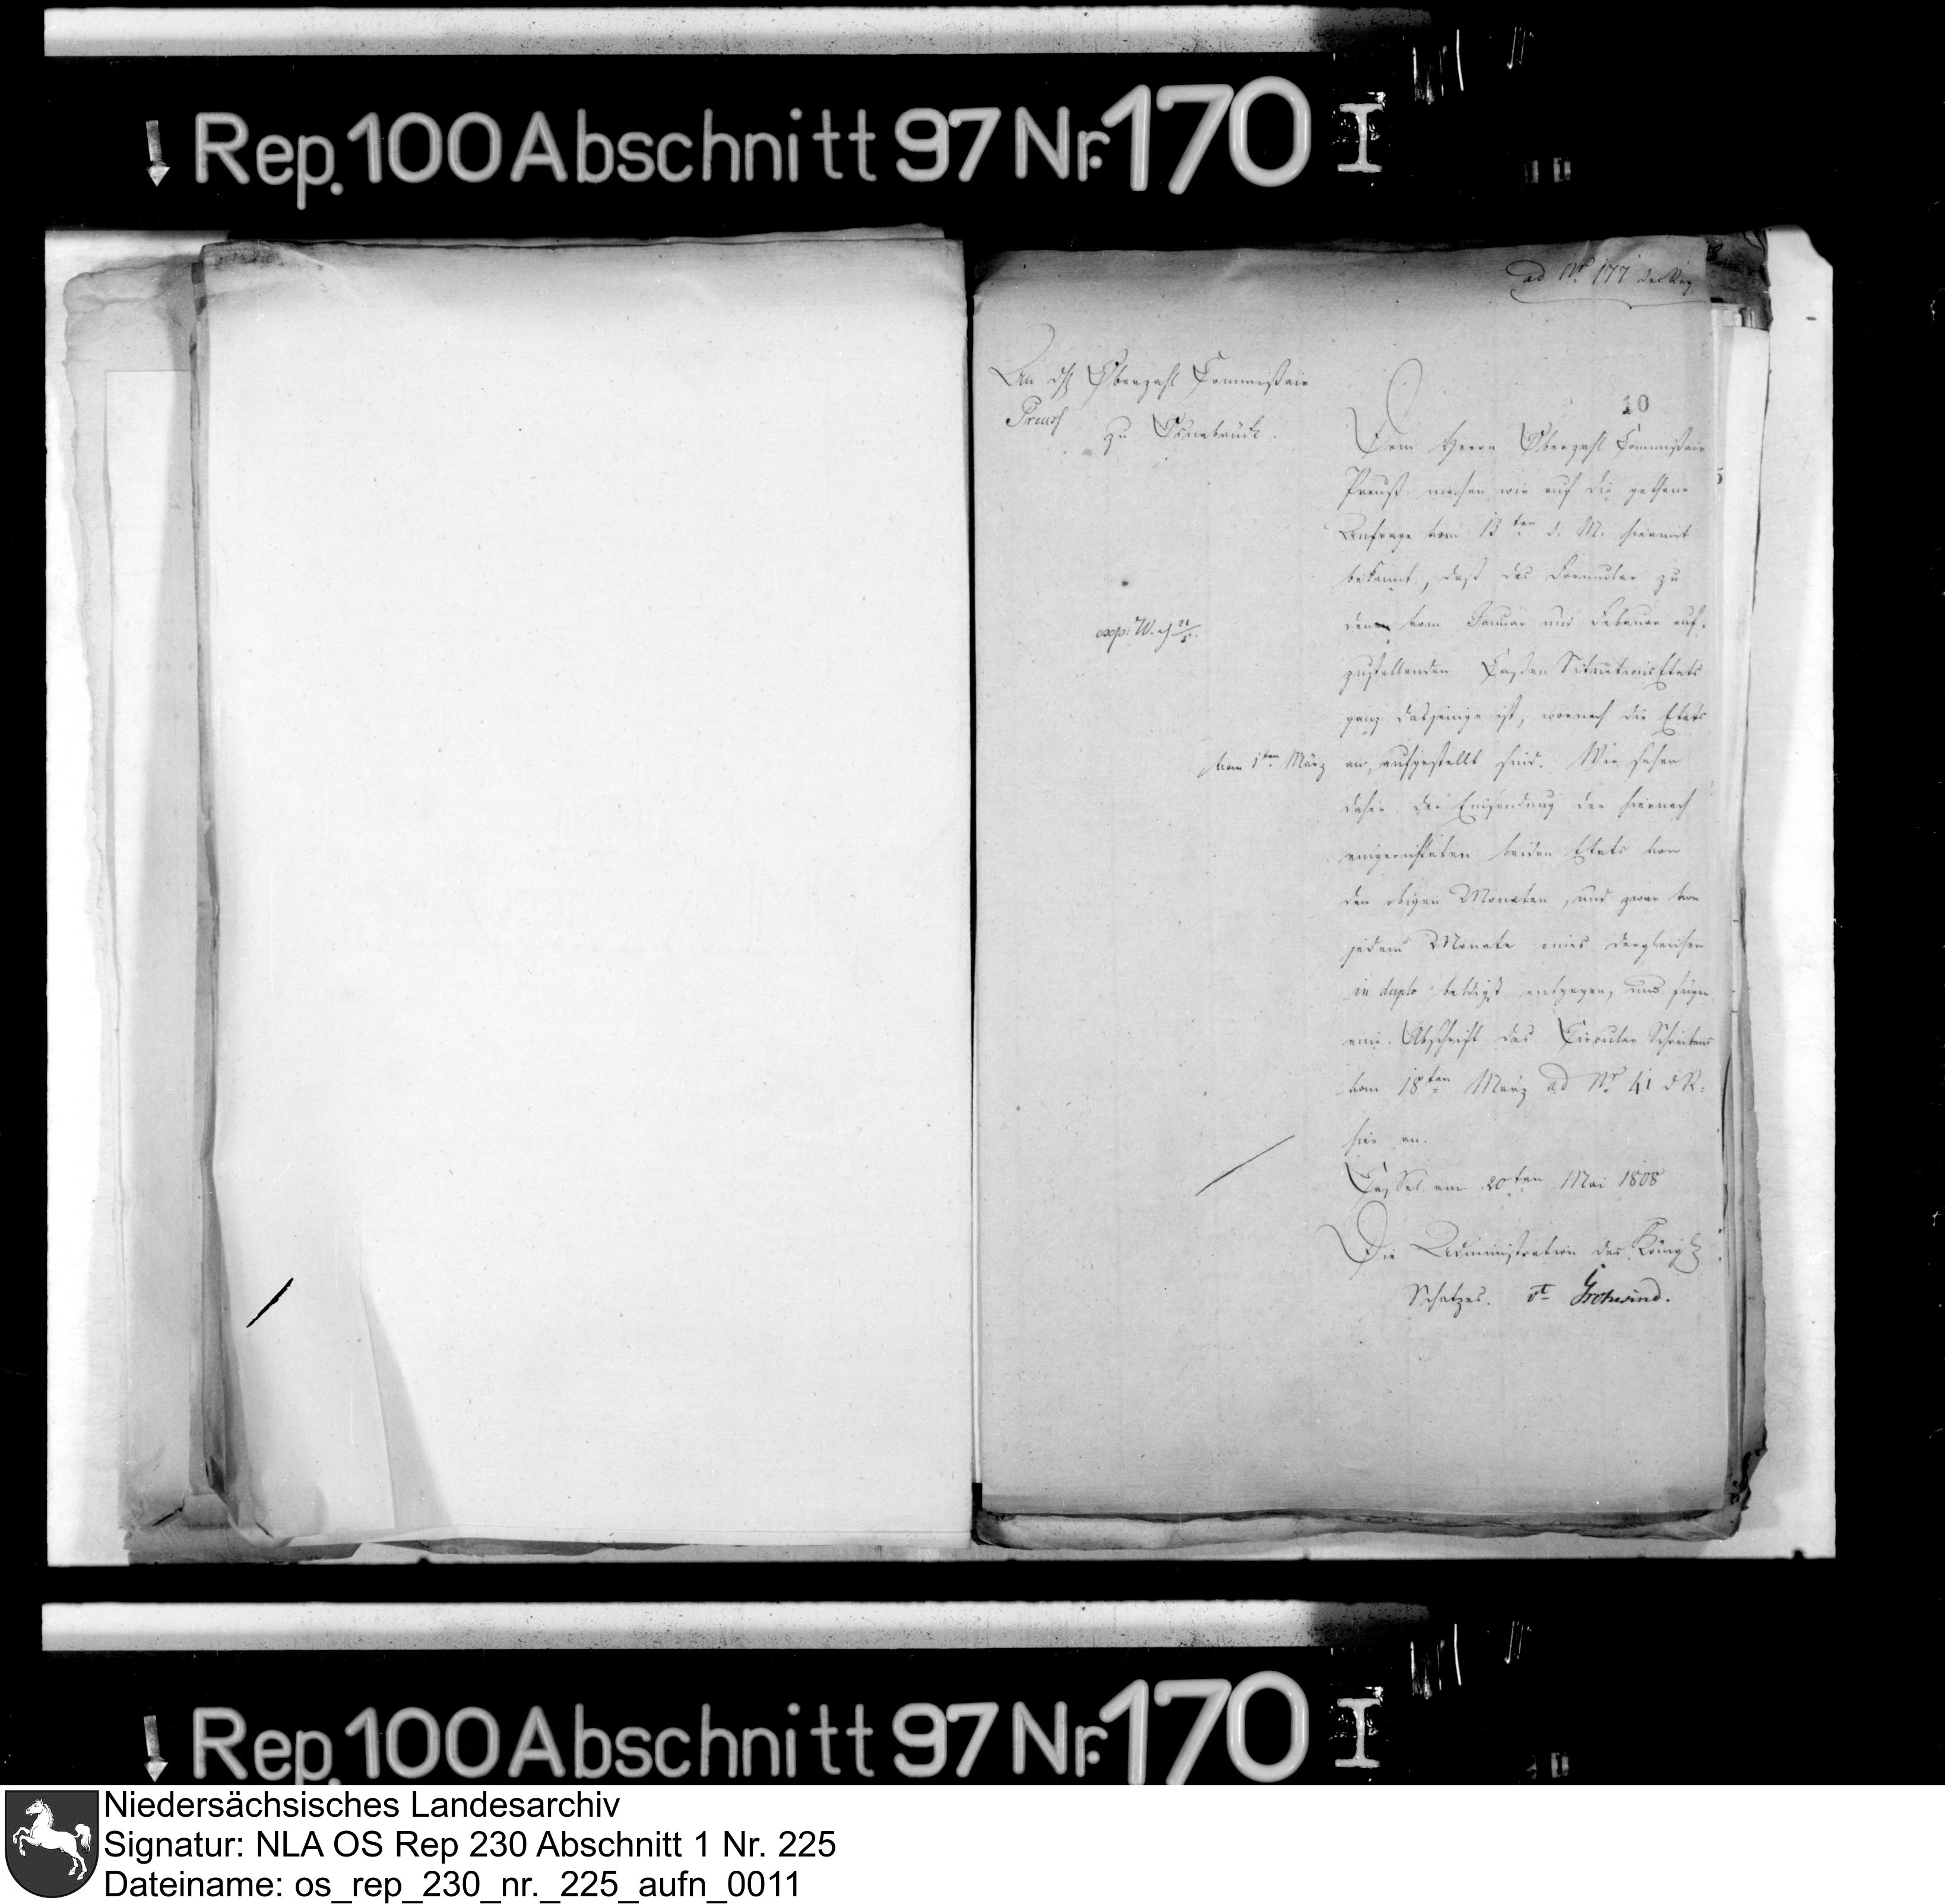 Rep. 100 Abschnitt 97 Nr. 170 I
ad No 177 des Reg
10
An den Oberzahl Commissair
Preuss
zu Osnabrück.
Dem Herrn Oberzahl Commissair
Preuß machen wir auf die gethane
Anfrage vom 13ten d. M. hiermit
bekannt, daß das Formular zu
den vom Januar und Februar auf-
zustellenden Cassen Situations Etats
ganz dasjenige ist, wornach die Etats
vom 1ten März an, aufgestellt sind. Wir sehen
daher der Einsendung der hiernach
eingerichteten beiden Etats von
den obigen Monaten, und zwar von
jedem Monate eines dergleichen
in duplo baldigst entgegen, und fügen
eine Abschrift des Circular Schreibens
vom 18ten März ad No 41 d R.
hier an.
Cassel am 20ten Mai 1808
Die Administration des Königl
Schatzes.
exp: W. ej 21/5.
Rep. 100 Abschnitt 97 Nr. 170 I
Niedersächsisches Landesarchiv
Signatur: NLA OS Rep 230 Abschnitt 1 Nr. 225
Dateiname: os_rep_230_nr._225_aufn_0011